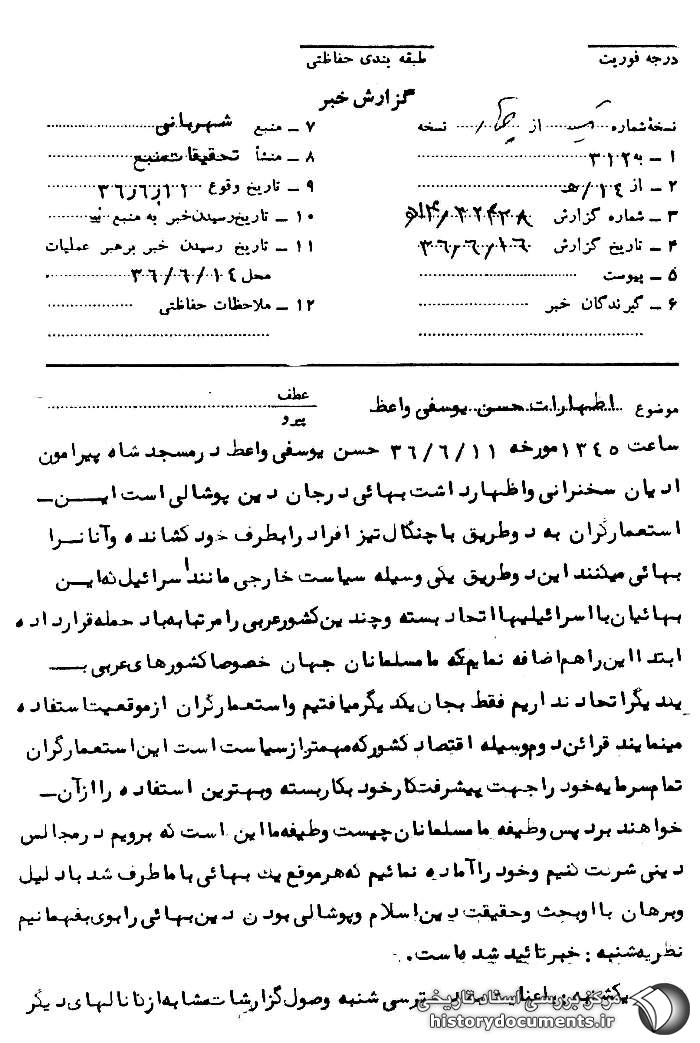 درجه فوریت
طبقه بندی حفاظتی
گزارش خبر
نسخهٔ شماره از نسخه
۱ ـ به ۳۱۲
۲ ـ از ۱۴/هـ
۳ ـ شماره گزارش ۳۲۴۳۸/۱۴هـ
۴ ـ تاریخ گزارش ۳۶/۶/۱۶
۵ ـ پیوست
۶ ـ گیرندگان خبر
۷ ـ منبع شهربانی
۸ ـ منشأ تحقیقات منبع
۹ ـ تاریخ وقوع ۳۶/۶/۱۱
۱۰ ـ تاریخ رسیدن خبر به منبع
۱۱ ـ تاریخ رسیدن خبر برهبر عملیات
محل ۳۶/۶/۱۴
۱۲ ـ ملاحظات حفاظتی
موضوع اظهارات حسن یوسفی واعظ
عطف
پیرو
ساعت ۱۳۴۵ مورخه ۳۶/۶/۱۱ حسن یوسفی واعظ درمسجد شاه پیرامون
ادیان سخنرانی واظهارداشت بهائی درجان دین پوشالی است ایـــن ـ
استعمارگران به دوطریق باچنگال تیز افراد رابطرف خودکشانده وآنانـرا
بهائی میکنند این دوطریق یکی وسیله سیاست خارجی مانند اسرائیل که این
بهائیان با اسرائیلیها اتحاد بسته وچندین کشورعربی را مرتبا به باد حمله قرارداده
ابتدا این راهم اضافه نمایم که مامسلمانان جهان خصوصا کشورهای عربی بــ
یکدیگراتحاد نداریم فقط بجان یکدیگرمیافتیم واستعمارگران ازموقعیت استفاده
مینمایند قرائن دوم وسیله اقتصاد کشورکه مهمترازسیاست است این استعمارگران
تمام سرمایه خود راجهت پیشرفت کارخود بکاربسته وبهترین استفاده را ازآن ـ
خواهند برد پس وظیفه مامسلمانان چیست وظیفه ما این است که برویم درمجالس
دینی شرکت کنیم وخود راآماده نمائیم که هرموقع یك بهائی باماطرف شد بادلیل
وبرهان با اوبحث وحقیقت دین اسلام وپوشالی بودن دین بهائی رابوی بفهمانیم
نظریه شنبه : خبرتائید شده است.
یکشنبه وصول گزارشات مشابه ازکانالهای دیگر
مرکز بررسی اسناد تاریخی
historydocuments.ir